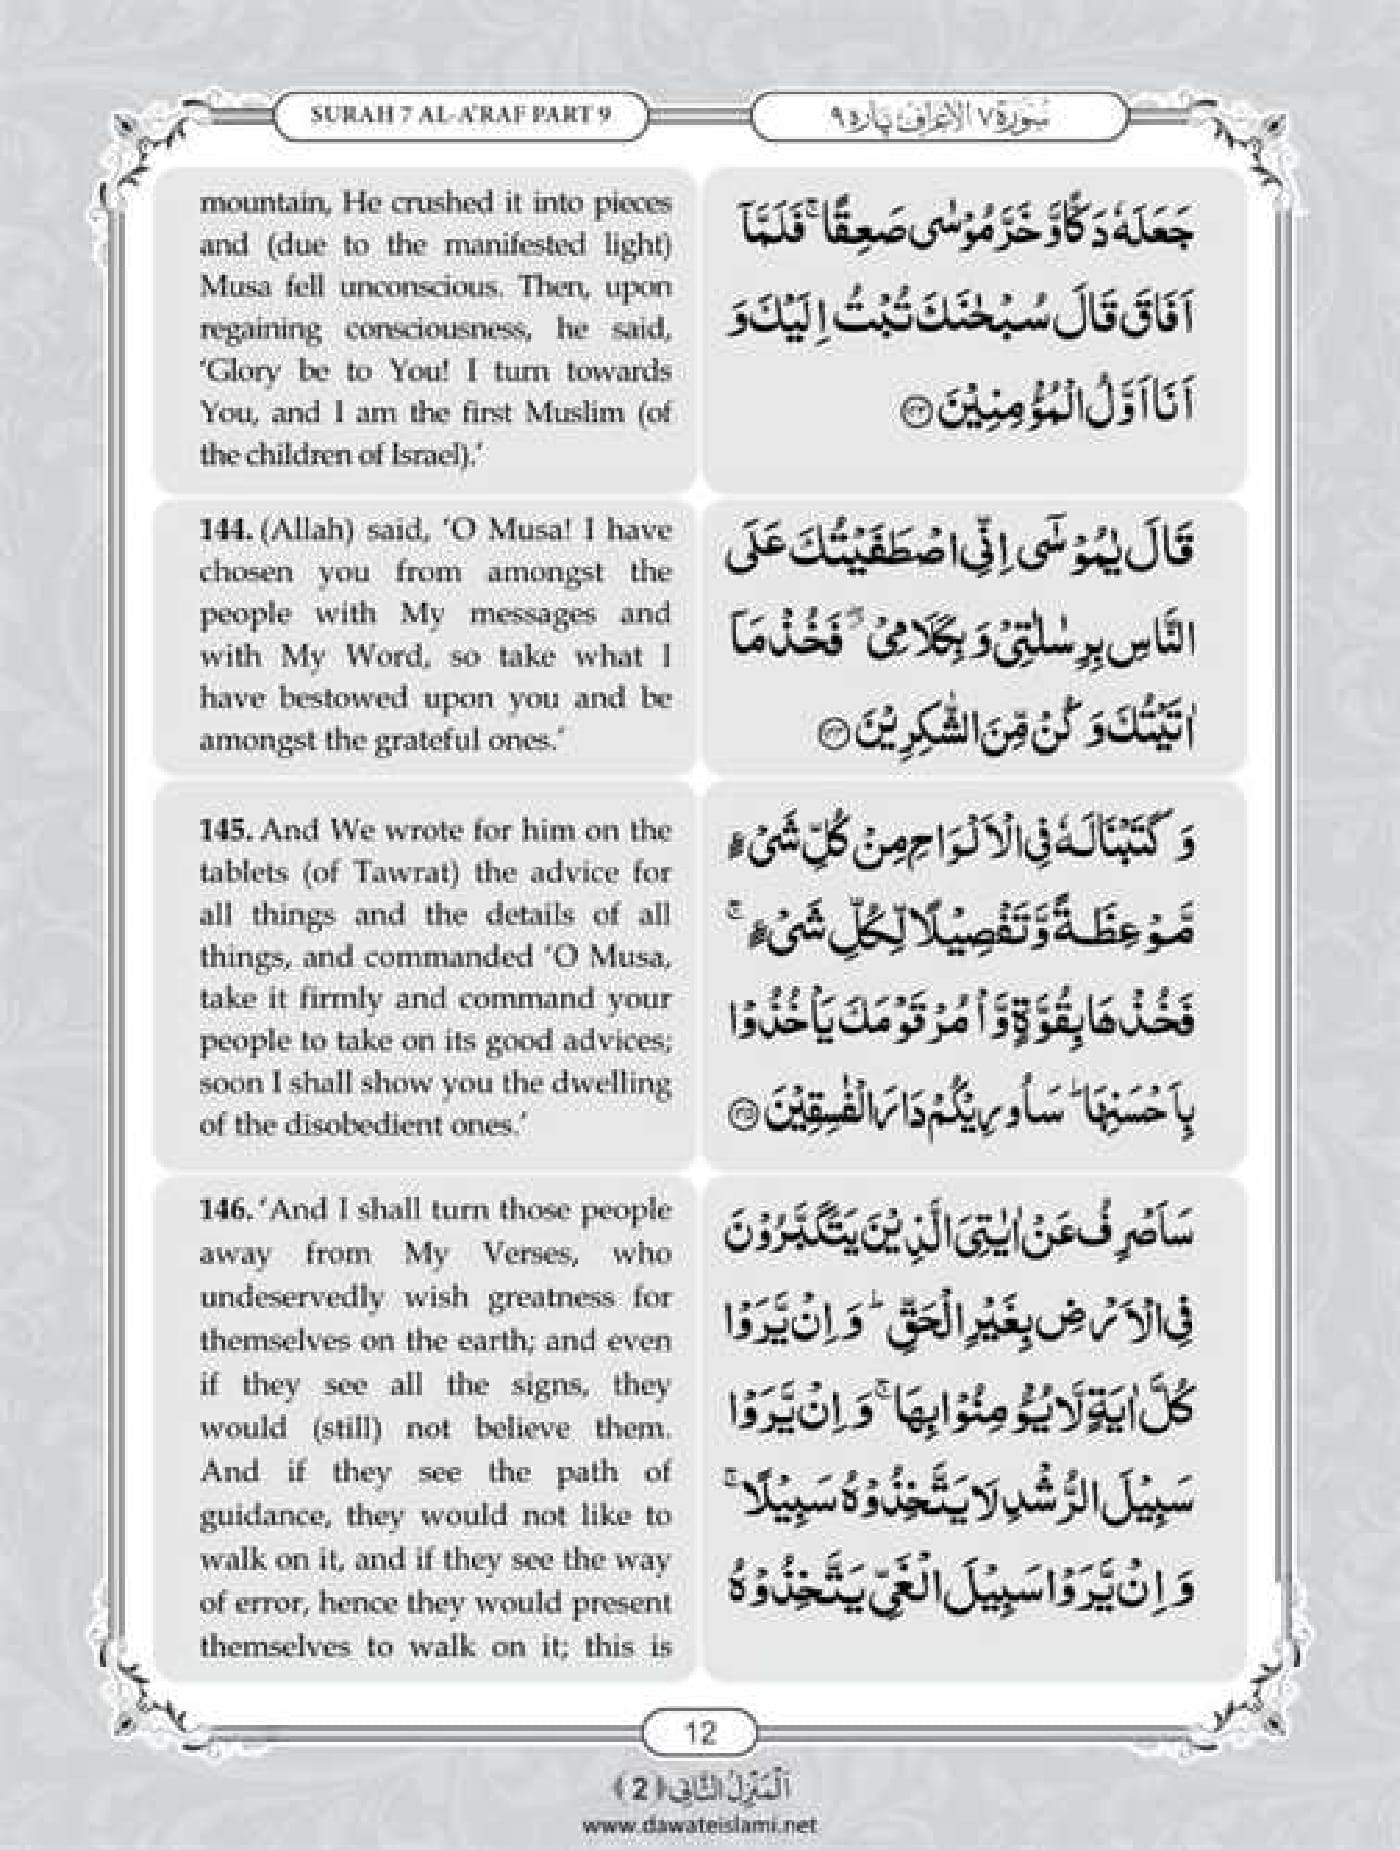 SURAH 7 AL-A'RAF PART 9
سُورَة ٧ الْاَعْرَاف پَارَه ٩
mountain, He crushed it into pieces
and (due to the manifested light)
Musa fell unconscious. Then, upon
regaining consciousness, he said,
‘Glory be to You! I turn towards
You, and I am the first Muslim (of
the children of Israel).’
جَعَلَهٗ دَكًّا وَّ خَرَّ مُوْسٰى صَعِقًا ۚ فَلَمَّاۤ
اَفَاقَ قَالَ سُبْحٰنَكَ تُبْتُ اِلَیْكَ وَ
اَنَا اَوَّلُ الْمُؤْمِنِیْنَ ﴿۱۴۳﴾
144. (Allah) said, ‘O Musa! I have
chosen you from amongst the
people with My messages and
with My Word, so take what I
have bestowed upon you and be
amongst the grateful ones.’
قَالَ یٰمُوْسٰۤى اِنِّی اصْطَفَیْتُكَ عَلَى
النَّاسِ بِرِسٰلٰتِیْ وَ بِكَلَامِیْ ۖ٘ فَخُذْ مَاۤ
اٰتَیْتُكَ وَ كُنْ مِّنَ الشّٰكِرِیْنَ ﴿۱۴۴﴾
145. And We wrote for him on the
tablets (of Tawrat) the advice for
all things and the details of all
things, and commanded ‘O Musa,
take it firmly and command your
people to take on its good advices;
soon I shall show you the dwelling
of the disobedient ones.’
وَ كَتَبْنَا لَهٗ فِی الْاَلْوَاحِ مِنْ كُلِّ شَیْءٍ
مَّوْعِظَةً وَّ تَفْصِیْلًا لِّكُلِّ شَیْءٍ ۚ
فَخُذْهَا بِقُوَّةٍ وَّ اْمُرْ قَوْمَكَ یَاْخُذُوْا
بِاَحْسَنِهَا ؕ سَاُورِیْكُمْ دَارَ الْفٰسِقِیْنَ ﴿۱۴۵﴾
146. ‘And I shall turn those people
away from My Verses, who
undeservedly wish greatness for
themselves on the earth; and even
if they see all the signs, they
would (still) not believe them.
And if they see the path of
guidance, they would not like to
walk on it, and if they see the way
of error, hence they would present
themselves to walk on it; this is
سَاَصْرِفُ عَنْ اٰیٰتِیَ الَّذِیْنَ یَتَكَبَّرُوْنَ
فِی الْاَرْضِ بِغَیْرِ الْحَقِّ ؕ وَ اِنْ یَّرَوْا
كُلَّ اٰیَةٍ لَّا یُؤْمِنُوْا بِهَا ۚ وَ اِنْ یَّرَوْا
سَبِیْلَ الرُّشْدِ لَا یَتَّخِذُوْهُ سَبِیْلًا ۚ
وَ اِنْ یَّرَوْا سَبِیْلَ الْغَیِّ یَتَّخِذُوْهُ
12
اَلْمَنْزِلُ الثَّانِی ﴿2﴾
www.dawateislami.net